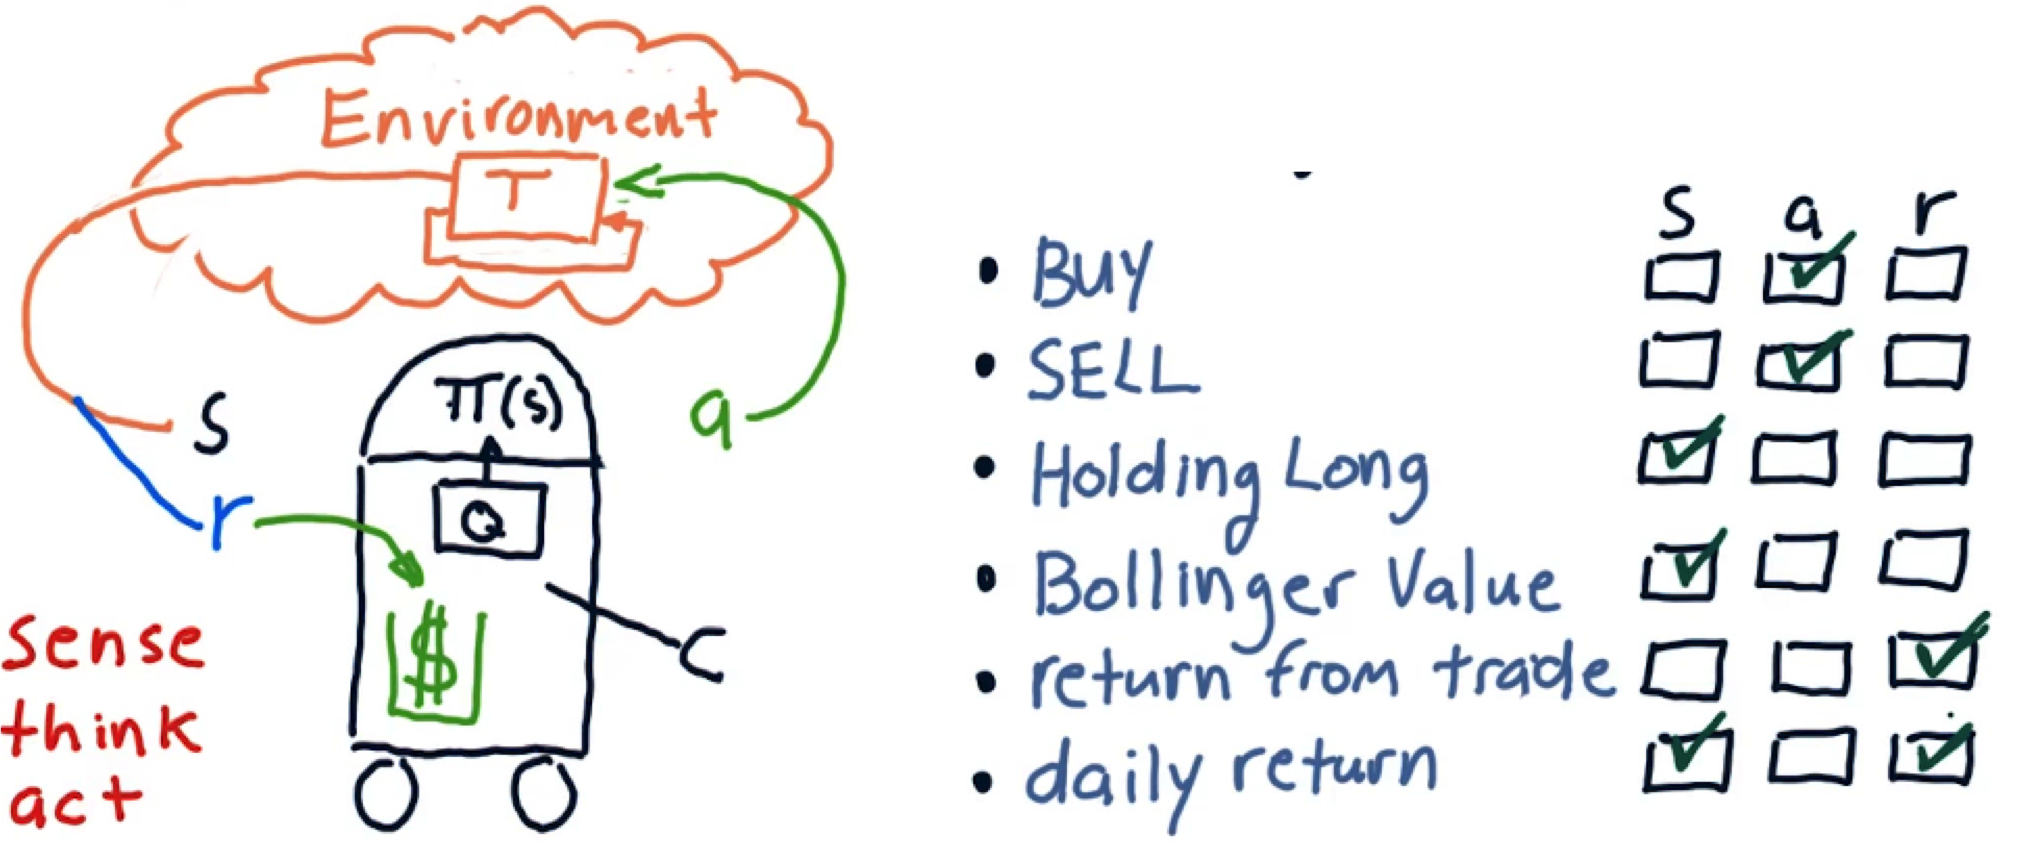 Environment
T
π(s)
s
a
Q
r
$
C
sense
think
act
s a r
• BUY
• SELL
• Holding Long
• Bollinger Value
• return from trade
• daily return